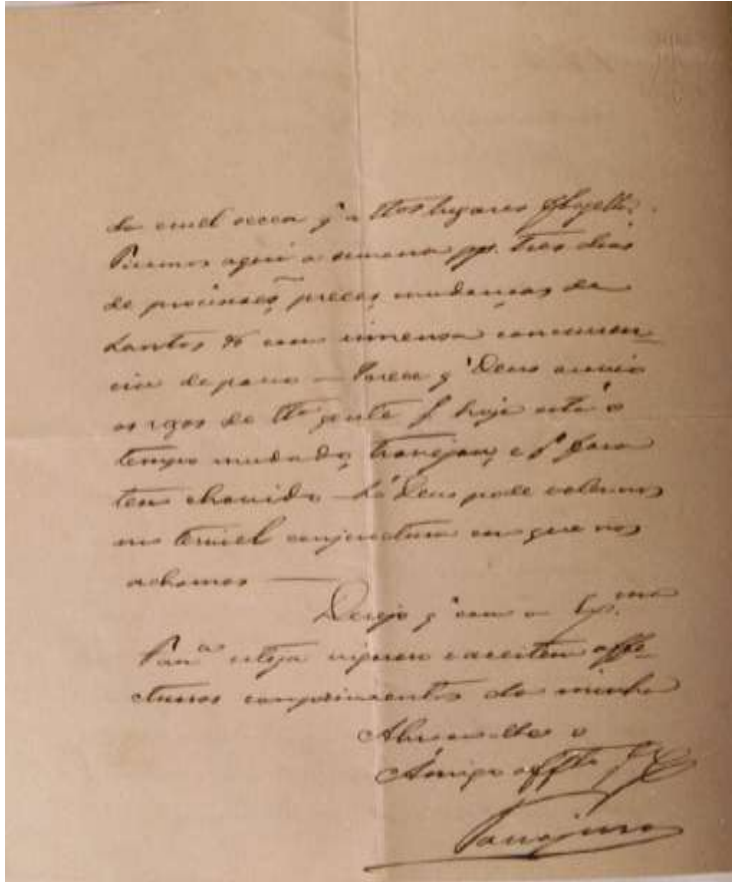 da cruel secca q' a estes lugares flagella.
Fizemos aqui a semana pp. tres dias
de procissões, preces, mudanças de
Santos & com immensa concurren-
cia de povo — Parece q' Deus ouvio
os rogos de gente p hoje está o
tempo mudado, e p' fora
tem chovido — Só Deus pode valer-nos
na terrivel conjunctura em que nos
achamos —
Desejo q' com a Exma
Fama esteja e aceitem affe-
ctuosos comprimentos da minha
Abraça-lhe o
Amigo affto